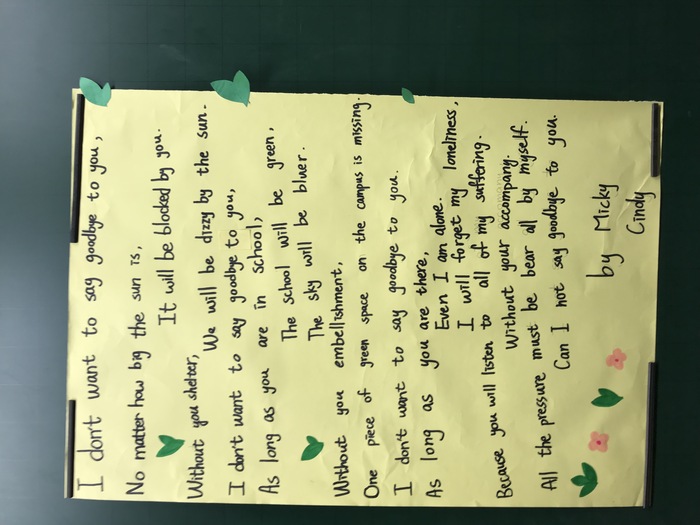 I don't want to say goodbye to you,
No matter how big the sun is,
It will be blocked by you.
Without you shelter,
We will be dizzy by the sun.
I don't want to say goodbye to you,
As long as you are in school,
The school will be green,
The sky will be bluer.
Without you embellishment,
One piece of green space on the campus is missing.
I don't want to say goodbye to you.
As long as you are there,
Even I am alone.
I will forget my loneliness,
Because you will listen to all of my suffering.
Without your accompany.
All the pressure must be bear all by myself.
Can I not say goodbye to you.
by Micky
Cindy